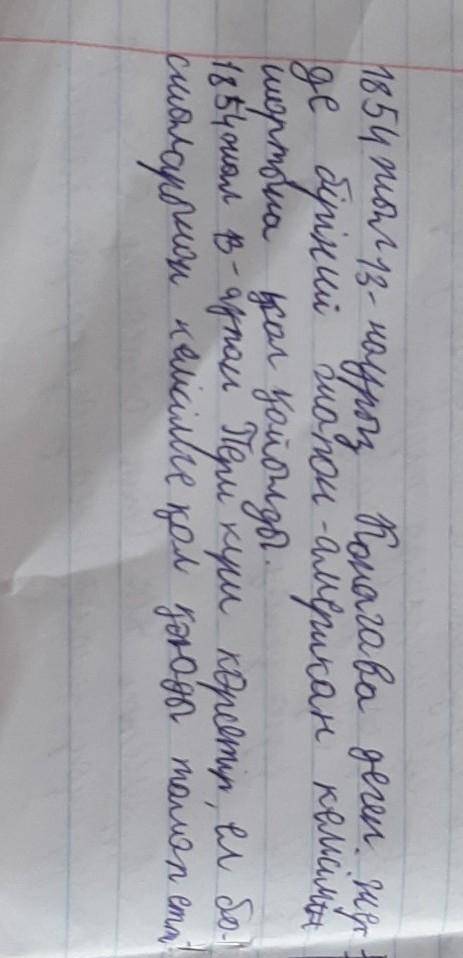 1854 жыл 13-наурыз Конагава деген жер-
де бірінші жапон-американ келісімі
шартына қол қойылды.
1854 жыл 13-ақпан Пери күш көрсетіп, ел ба-
сшыларынан келісімге қол қоюды талап етті